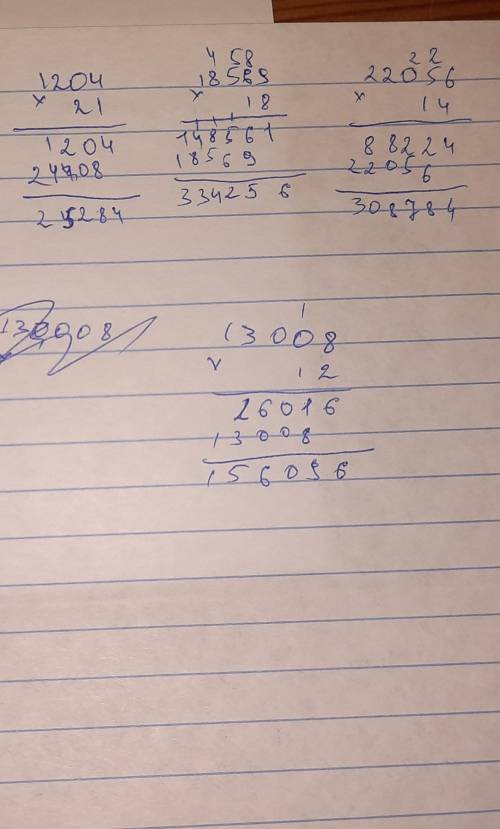 1204
× 21
1204
2408
25284
458
18569
× 18
148561
18569
334256
22
22056
× 14
88224
22056
308784
1
13008
× 12
26016
13008
156096